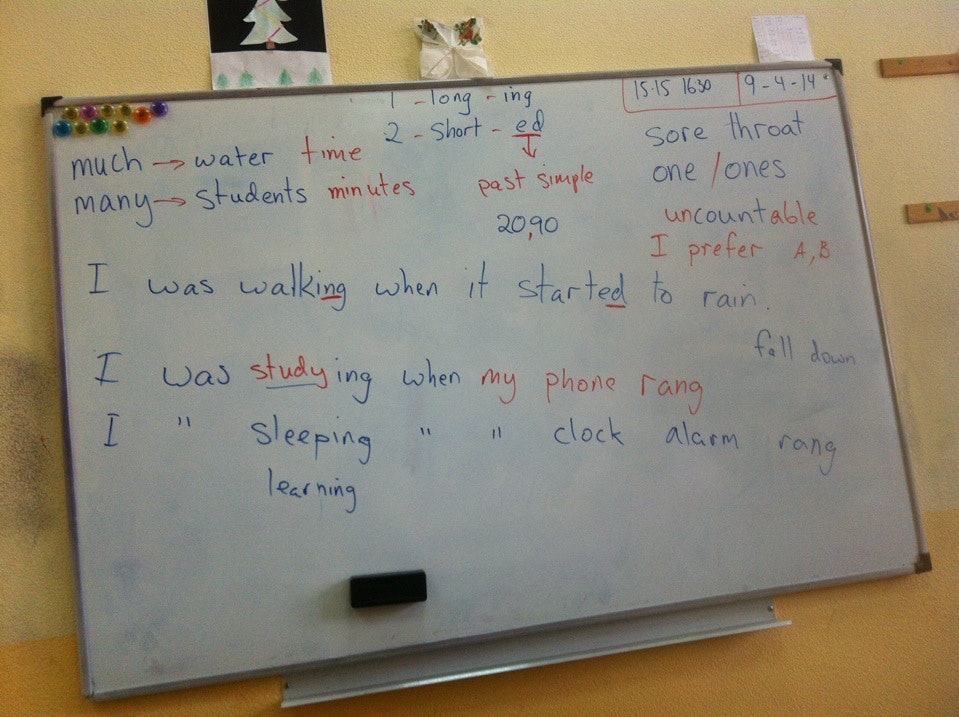 1 - long - ing
2 - short - ed
15.15 1630
9-4-14
much → water time
many → students minutes
past simple
20,90
sore throat
one / ones
uncountable
I prefer A, B
I was walking when it started to rain.
fall down
I was studying when my phone rang
I " sleeping " " clock alarm rang
learning